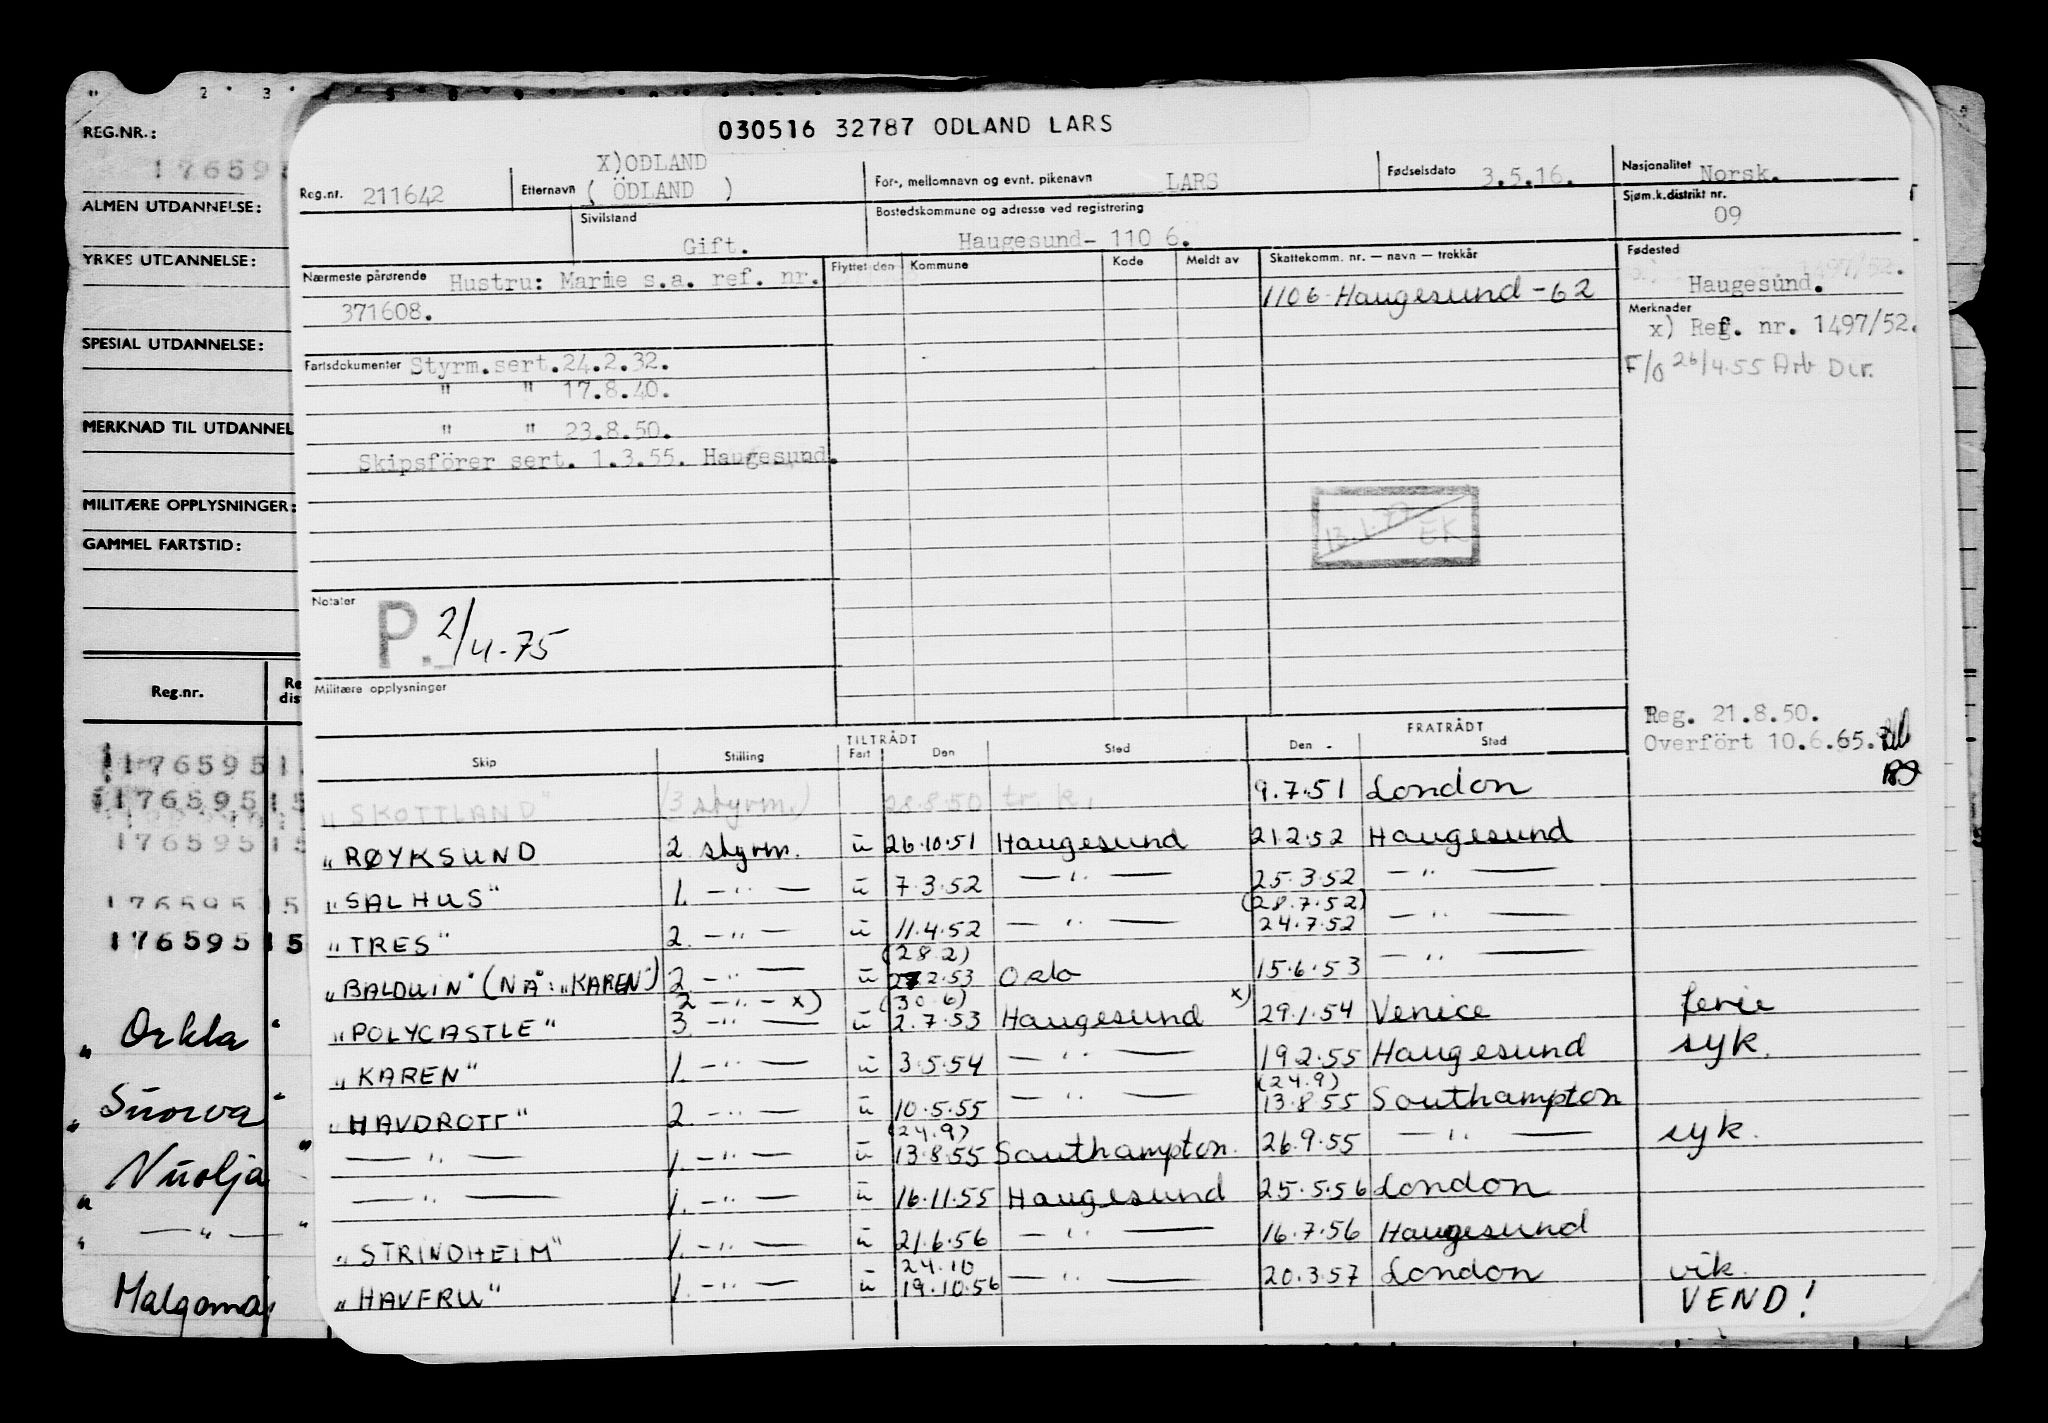 030516 32787 ODLAND LARS
REG.NR.:
176595
ALMEN UTDANNELSE:
YRKES UTDANNELSE:
SPESIAL UTDANNELSE:
MERKNAD TIL UTDANNEL
MILITÆRE OPPLYSNINGER:
GAMMEL FARTSTID:
Reg.nr.
17659515
17659515
17659515
17659515
17659515
„Orkla“
„Suorva“
„Nuolja“
„ — “ — “
Malgomaj
Reg.nr. 211642
Etternavn X)ODLAND
( ÖDLAND )
For-, mellomnavn og evnt. pikenavn LARS
Fødselsdato 3.5.16.
Nasjonalitet Norsk.
Sivilstand Gift.
Bostedskommune og adresse ved registrering
Haugesund- 110 6.
Sjøm.k.distrikt nr. 09
Nærmeste pårørende Hustru: Marie s.a. ref. nr.
371608.
Flyttet den Kommune Kode Meldt av Skattekomm. nr. — navn — trekkår
1106 Haugesund -62
Fødested
Haugesund.
Merknader
x) Ref. nr. 1497/52.
F/O 26/4.55 Arb Dir.
Fartsdokumenter Styrm.sert.24.2.32.
" " 17.8.40.
" " 23.8.50.
Skipsförer sert. 1.3.55. Haugesund.
13.1.77 EK
Notater P. 2/4-75
Militære opplysninger
Reg. 21.8.50.
Overfört 10.6.65.
TILTRÅDT FRATRÅDT
Skip Stilling Fart Den Sted Den Sted
„SKOTTLAND“ (3 styrm.) 28.8.50 tr. k. 9.7.51 London
„RØYKSUND 2 styrm. u 26.10.51 Haugesund 21.2.52 Haugesund
„SALHUS“ 1. — “ — u 7.3.52 — “ — 25.3.52 — “ —
(28.7.52)
„TRES“ 2. — “ — u 11.4.52 — “ — 24.7.52 — “ —
(28.2)
„BALDUIN“ (NÅ: „KAREN“) 2. — “ — u 2.53 Oslo 15.6.53 — “ —
2 — “ — x) (30.6) x)
„POLYCASTLE“ 3. — “ — u 2.7.53 Haugesund 29.1.54 Venice ferie
„KAREN“ 1. — “ — u 3.5.54 — “ — 19.2.55 Haugesund syk.
(24.9)
„HAVDROTT“ 2. — “ — u 10.5.55 — “ — 13.8.55 Southampton
(24.9)
— “ — 1. — “ — u 13.8.55 Southampton. 26.9.55 — “ — syk.
— “ — 1. — “ — u 16.11.55 Haugesund 25.5.56 London
„STRINDHEIM“ 1. — “ — u 21.6.56 — “ — 16.7.56 Haugesund
24.10
„HAVFRU“ 1. — “ — u 19.10.56 — “ — 20.3.57 London vik.
VEND!